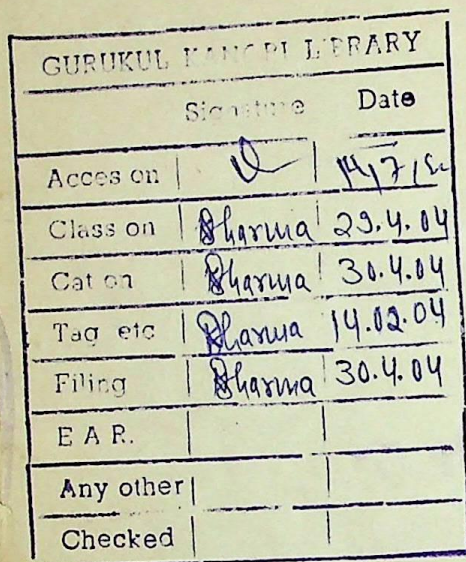 GURUKUL KANGRI LIBRARY
Signature Date
Acces on
Class on Sharma 29.4.04
Cat on Sharma 30.4.04
Tag etc Sharma 14.02.04
Filing Sharma 30.4.04
E A R.
Any other
Checked